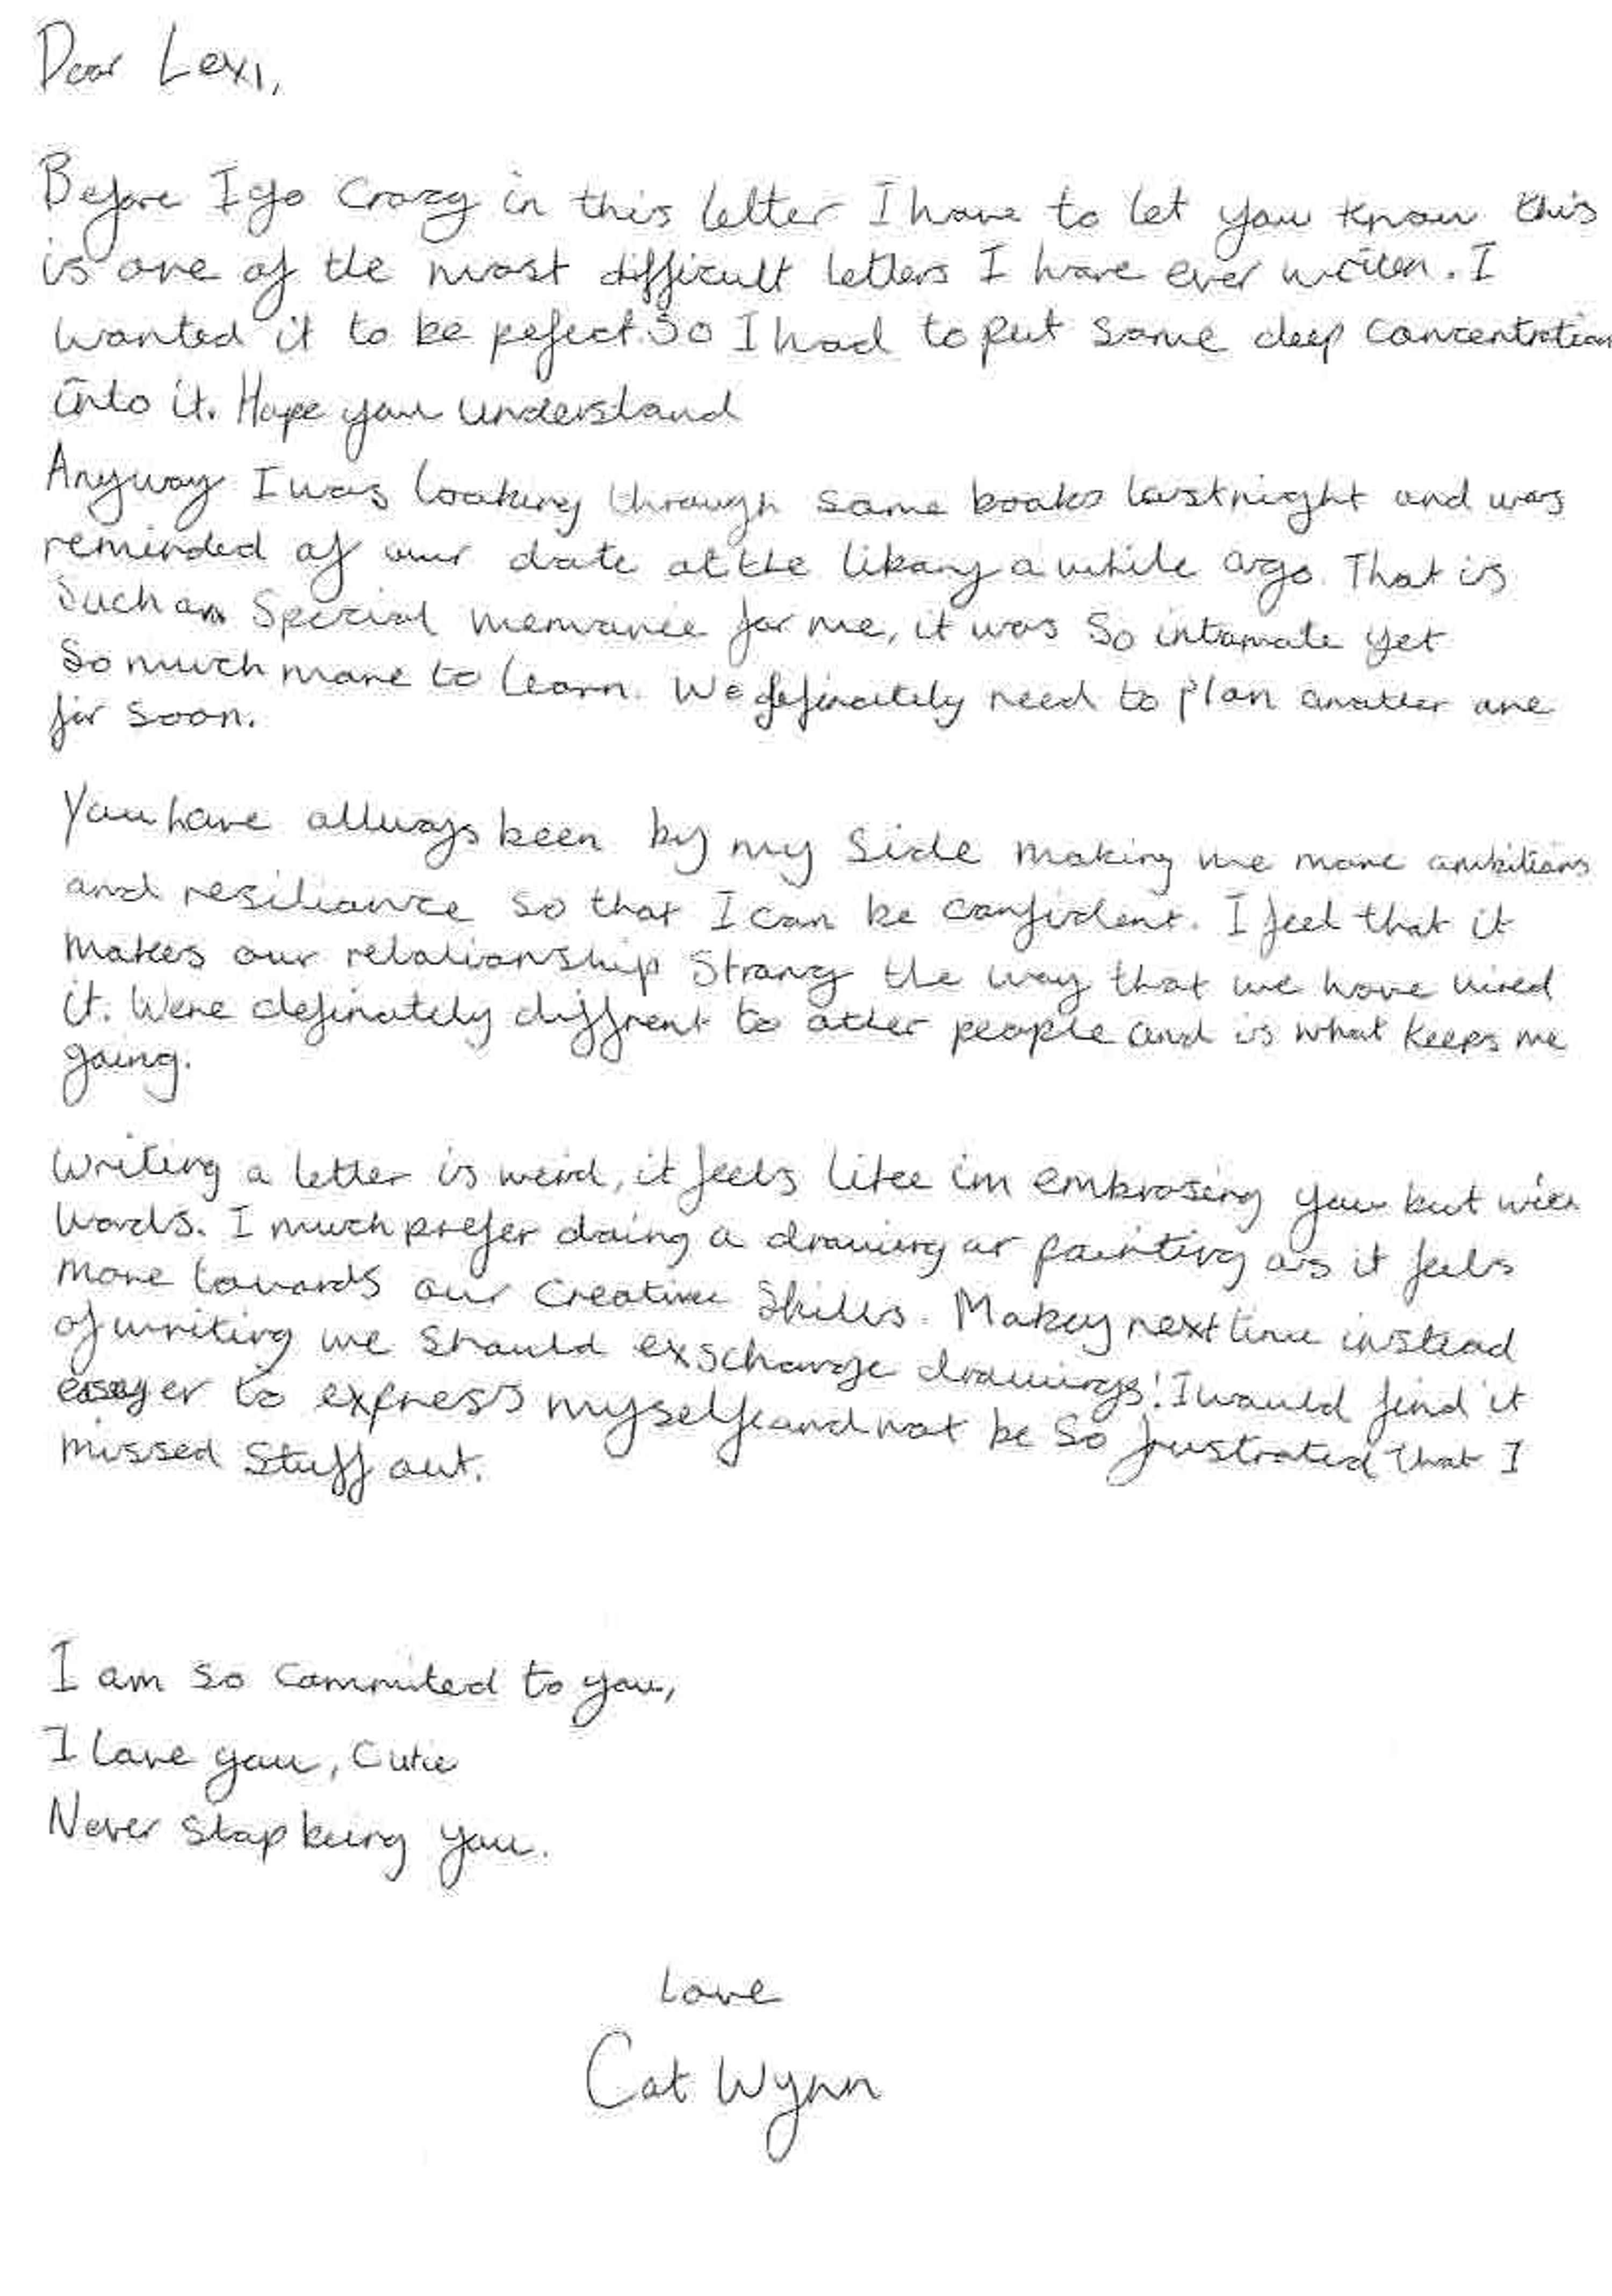 Dear Lexi,
Before I go Crazy in this letter I have to let you know this
is one of the most difficult letters I have ever writen. I
wanted it to be pefect. So I had to put some deep concentration
into it. Hope you understand
Anyway I was looking through some books lastnight and was
reminded of our date at the libary a while ago. That is
Such a Special memorie for me, it was So intamate yet
So much more to learn. We definately need to plan another one
for soon.
You have allways been by my Side making me more ambitions
and resiliance so that I can be confident. I feel that it
makes our relationship Strong the way that we have wired
it. Were definately diffrent to other people and is what keeps me
going.
Writing a letter is weird, it feels like im embrasing you but with
words. I much prefer doing a drawing or painting as it feels
more towards our Creative Skills. Makey next time instead
of writing we Should exschange drawings! I would find it
easyer to express myself and not be So frustrated that I
missed Stuff out.
I am so Commited to you,
I love you, Cutie
Never stop being you.
Love
Cat Wynn